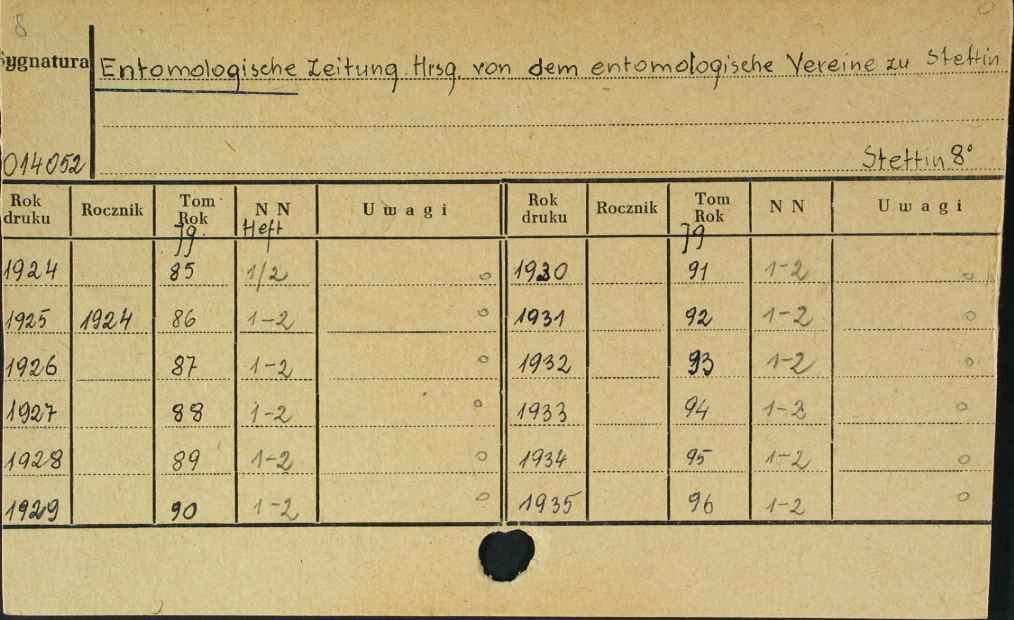 8
Sygnatura Entomologische Zeitung. Hrsg. von dem entomologische Vereine zu Stettin
014052 Stettin 8°
Rok druku Rocznik Tom Rok N N U w a g i Rok druku Rocznik Tom Rok N N U w a g i
Jg. Heft Jg
1924 85 1/2 o 1930 91 1-2 o
1925 1924 86 1-2 o 1931 92 1-2 o
1926 87 1-2 o 1932 93 1-2 o
1927 88 1-2 o 1933 94 1-2 o
1928 89 1-2 o 1934 95 1-2 o
1929 90 1-2 o 1935 96 1-2 o